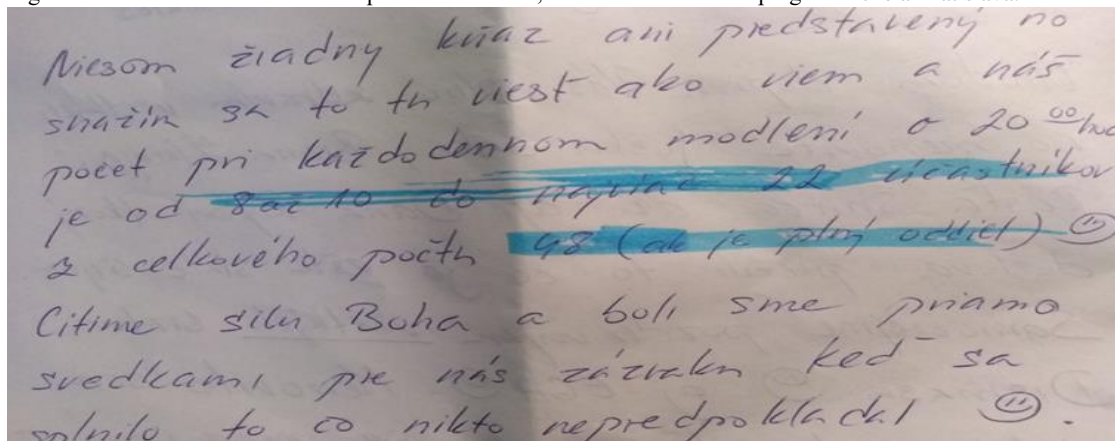 Niesom žiadny kňaz ani predstavený no
snažím sa to tu viesť ako viem a náš
počet pri každodennom modlení o 20 00 hod
je od 8 až 10 do najviac 22 účastníkov
z celkového počtu 48 (ak je plný oddiel)
Cítime silu Boha a boli sme priamo
svedkami pre nás zázraku keď sa
splnilo to čo nikto nepredpokladal .